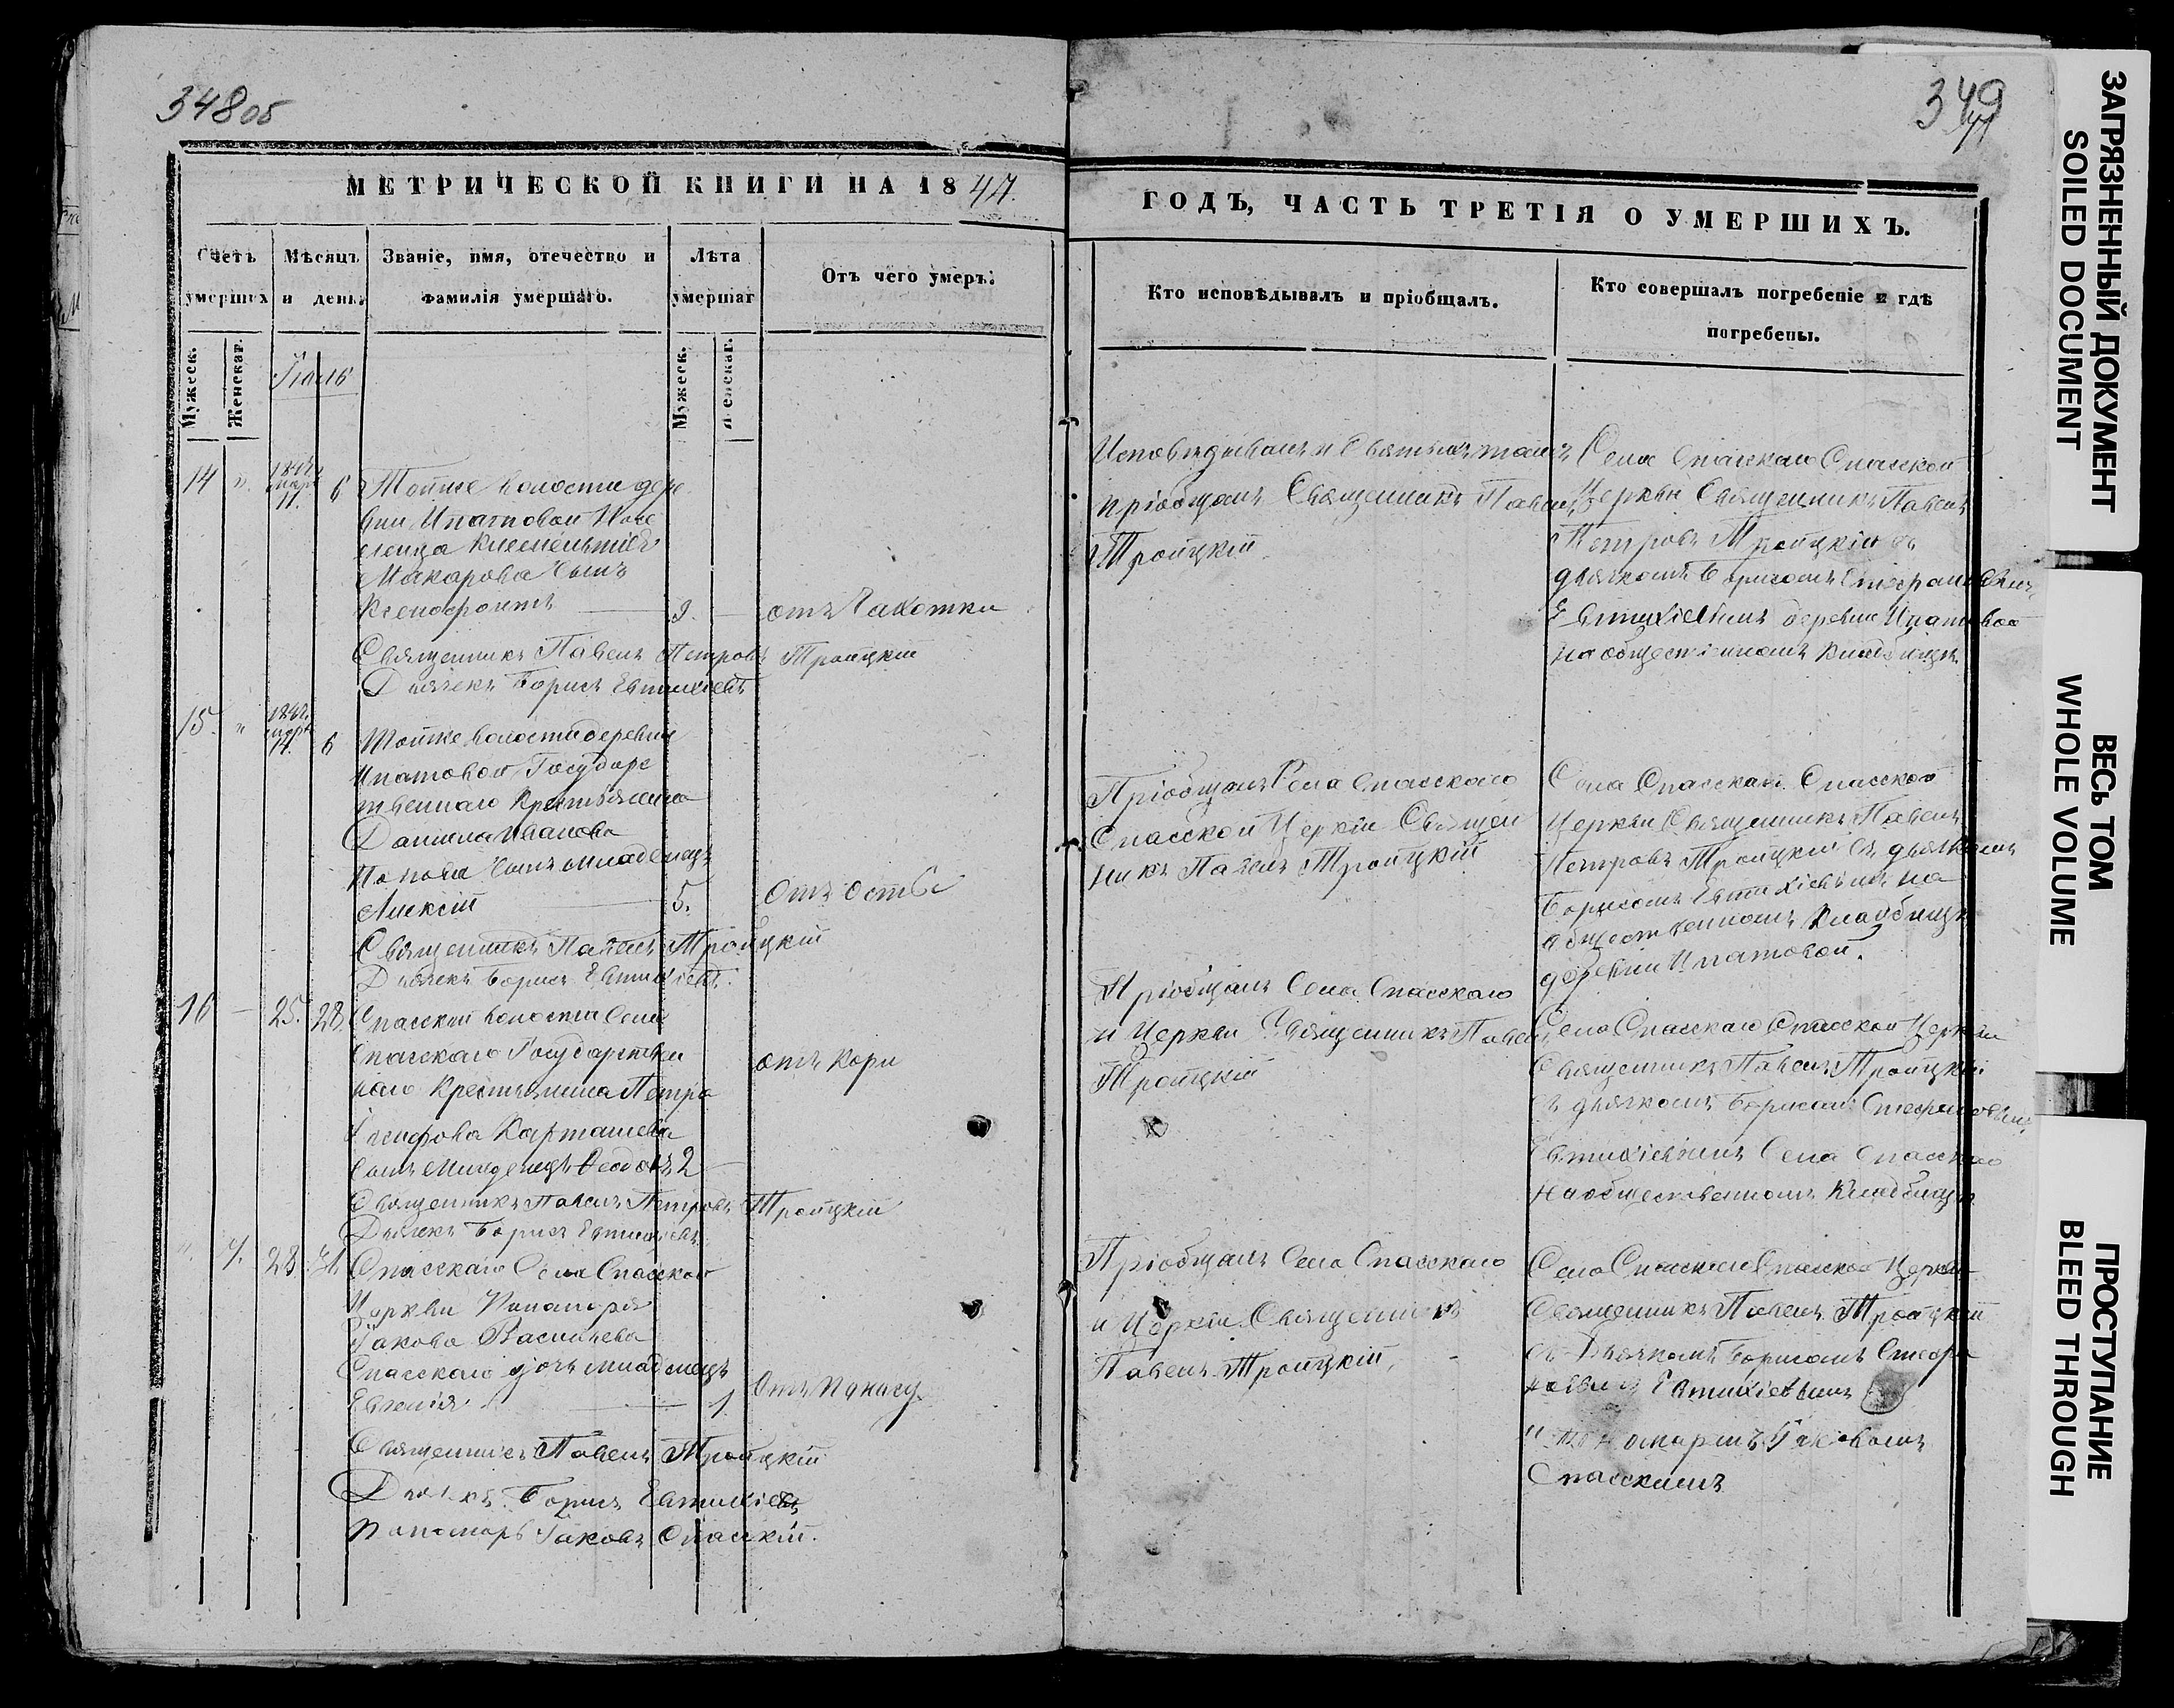 348об
МЕТРИЧЕСКОЙ КНИГИ НА 1847.
Счетъ умершихъ
Мѣсяцъ и день.
Званіе, имя, отечество и фамилія умершаго.
Лѣта умершаг
Отъ чего умеръ:
Мужеск.
Женскаг.
Мужеск.
Женскаг.
Іюль
14 " 11. 6 Тойже волости дере
вни Ипатовой Посе
ленца Климентія
Макарова сынъ
Ксенофонтъ 9. отъ Чахотки
Священникъ Павелъ Петровъ Троицкій
Дьячекъ Борисъ Евтихіевъ
15. " 6 Тойже волости деревни
Ипатовой Государс
твеннаго Крестьянина
Даниила Иванова
Попова сынъ младенецъ
Алексій 5. Отъ Оспы
Священникъ Павелъ Троицкій
Дьячекъ Борисъ Евтихіевъ.
16 — 25. 28. Спасской волости Села
Спасскаго Государствен
наго Крестьянина Петра
Карташева отъ Кори
сынъ младенецъ Феодотъ 2
Священникъ Павелъ Петровъ Троицкій
Дьячекъ Борисъ Евтихіевъ
". 7. 28. 31. Спасскаго Села Спасской
Церкви Пономаря
Іакова Васильева
Спасскаго дочь младенецъ
Евгенія 1.
Священникъ Павелъ Троицкій
Дьячекъ Борисъ Евтихіевъ
Пономарь Іаковъ Спасскій.
349
ГОДЪ, ЧАСТЬ ТРЕТІЯ О УМЕРШИХЪ.
Кто исповѣдывалъ и пріобщалъ.
Кто совершалъ погребеніе и гдѣ погребены.
Исповѣдывалъ и Святыхъ таинъ
пріобщалъ Священникъ Павелъ
Троицкій
Села Спасскаго Спасской
Церкви Священникъ Павелъ
Петровъ Троицкій съ
дьячкомъ Борисомъ Стефановымъ
Евтихіевымъ деревни Ипатовой
на общественномъ Кладбищѣ.
Пріобщалъ Села Спасскаго
Спасской Церкви Священ
никъ Павелъ Троицкій
Села Спасскаго Спасской
Церкви Священникъ Павелъ
Петровъ Троицкій съ дьячкомъ
Борисомъ Евтихіевымъ на
общественномъ Кладбищѣ
деревни Ипатовой.
Пріобщалъ Села Спасскаго
и Церкви Священникъ Павелъ
Троицкій
Села Спасскаго Спасской Церкви
Священникъ Павелъ Троицкій
съ дьячкомъ Борисомъ Стефановымъ
Евтихіевымъ Села Спасскаго
На общественномъ Кладбищѣ
Пріобщалъ Села Спасскаго
и Церкви Священникъ
Павелъ Троицкій,
Села Спасскаго Спасской Церкви
Священникъ Павелъ Троицкій
съ Дьячкомъ Борисомъ Стефа
новымъ Евтихіевымъ
и пономаремъ Іаковомъ
Спасскимъ
ЗАГРЯЗНЕННЫЙ ДОКУМЕНТ
SOILED DOCUMENT
ВЕСЬ ТОМ
WHOLE VOLUME
ПРОСТУПАНИЕ
BLEED THROUGH